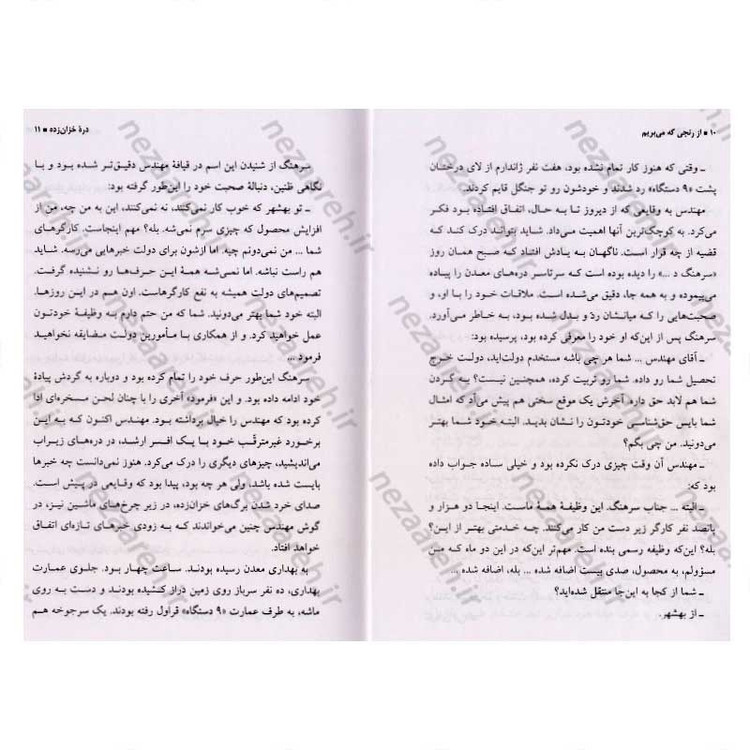 ۱۰ ■ از رنجی که می‌بریم
ـ وقتی که هنوز کار تمام نشده بود، هفت نفر ژاندارم از لای درختان
پشت «۹ دستگاه» رد شدند و خودشون رو تو جنگل قایم کردند.
مهندس به وقایعی که از دیروز تا به حال، اتفاق افتاده بود فکر
می‌کرد. به کوچک‌ترین آنها اهمیت می‌داد. شاید بتواند درک کند که
قضیه از چه قرار است. ناگهان به یادش افتاد که صبح همان روز
«سرهنگ د ...» را دیده بوده است که سرتاسر دره‌های معدن را پیاده
می‌پیموده و به همه جا، دقیق می‌شده است. ملاقات خود را با او، و
صحبت‌هایی را که میانشان ردّ و بدل شده بود، به خاطر می‌آورد.
سرهنگ پس از این‌که او خود را معرفی کرده بود، پرسیده بود:
ـ آقای مهندس ... شما هر چی باشه مستخدم دولت‌اید، دولت خرج
تحصیل شما رو داده. شما رو تربیت کرده، همچنین نیست؟ به گردن
شما هم لابد حق داره. آخرش یک موقع سختی هم پیش می‌آد که امثال
شما بایس حق‌شناسی خودتون را نشان بدید. البته خود شما بهتر
می‌دونید. من چی بگم؟
ـ مهندس آن وقت چیزی درک نکرده بود و خیلی ساده جواب داده
بود که:
ـ البته ... جناب سرهنگ. این وظیفهٔ همهٔ ماست. اینجا دو هزار و
پانصد نفر کارگر زیر دست من کار می‌کنند. چه خدمتی بهتر از این؟
بله؟ این‌که وظیفه رسمی بنده است. مهم‌تر این‌که در این دو ماه که من
مسؤولم، به محصول، صدی بیست اضافه شده ... بله، اضافه شده ...
ـ شما از کجا به این‌جا منتقل شده‌اید؟
ـ از بهشهر.
درهٔ خزان‌زده ■ ۱۱
سرهنگ از شنیدن این اسم در قیافهٔ مهندس دقیق‌تر شده بود و با
نگاهی ظنین، دنبالهٔ صحبت خود را این‌طور گرفته بود:
ـ تو بهشهر که خوب کار نمی‌کنند، نه نمی‌کنند، این به من چه، من از
افزایش محصول که چیزی سرم نمی‌شه. بله؟ مهم اینجاست. کارگرهای
شما ... من نمی‌دونم چیه. اما ازشون برای دولت خبرهایی می‌رسه. شاید
هم راست نباشه. اما نمی‌شه همهٔ این حرف‌ها رو نشنیده گرفت.
تصمیم‌های دولت همیشه به نفع کارگرهاست. اون هم در این روزها.
البته خود شما بهتر می‌دونید. شما که من حتم دارم به وظیفهٔ خودتون
عمل خواهید کرد. و از همکاری با مأمورین دولت مضایقه نخواهید
فرمود ...
سرهنگ این‌طور حرف خود را تمام کرده بود و دوباره به گردش پیادهٔ
خود ادامه داده بود. و این «فرمود» آخری را با چنان لحن مسخره‌ای ادا
کرده بود که مهندس را خیال برداشته بود. مهندس اکنون که به این
برخورد غیرمترقّب خود با یک افسر ارشد، در دره‌های زیراب
می‌اندیشید، چیزهای دیگری را درک می‌کرد. هنوز نمی‌دانست چه خبرها
بایست شده باشد، ولی هر چه بود، پیدا بود که وقایعی در پیش است.
صدای خرد شدن برگ‌های خزان‌زده، در زیر چرخ‌های ماشین نیز، در
گوش مهندس چنین می‌خواندند که به زودی خبرهای تازه‌ای اتفاق
خواهد افتاد.
به بهداری معدن رسیده بودند. ساعت چهار بود. جلوی عمارت
بهداری، ده نفر سرباز روی زمین دراز کشیده بودند و دست به روی
ماشه، به طرف عمارت «۹ دستگاه» قراول رفته بودند. یک سرجوخه هم
nezaareh.ir